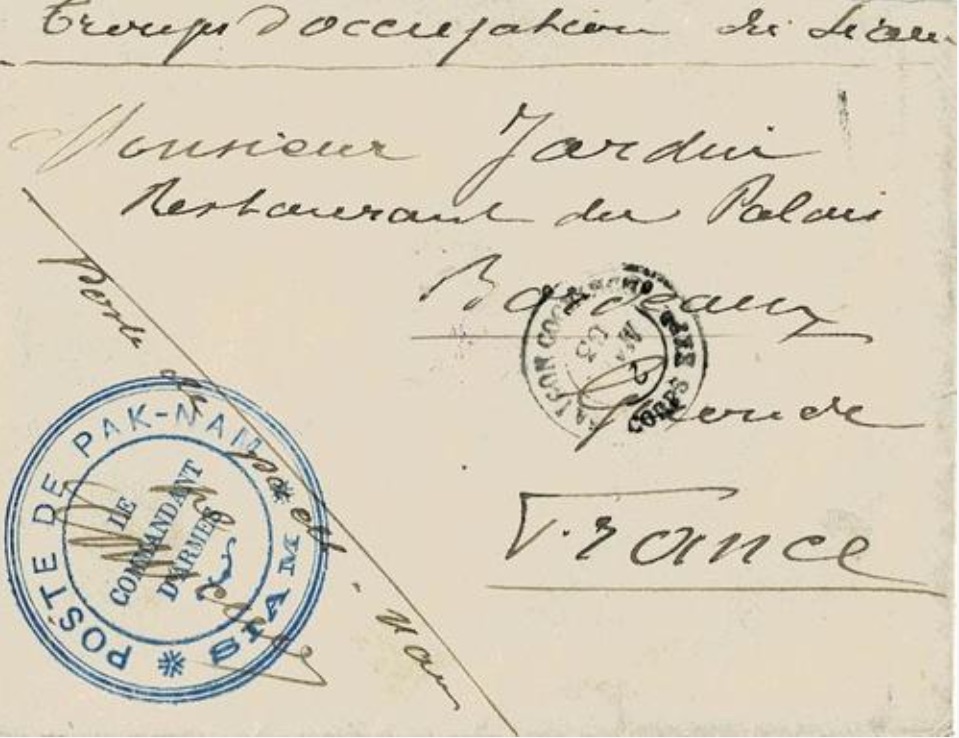 Troupes d'occupation du Siam
Monsieur Jardin
Restaurant du Palais
Bordeaux
Gironde
France
Poste de pack-nam
POSTE DE PAK-NAM
* SIAM *
LE
COMMANDANT
D'ARMES
SAIGON
CORPS EXP
2
MAI
03